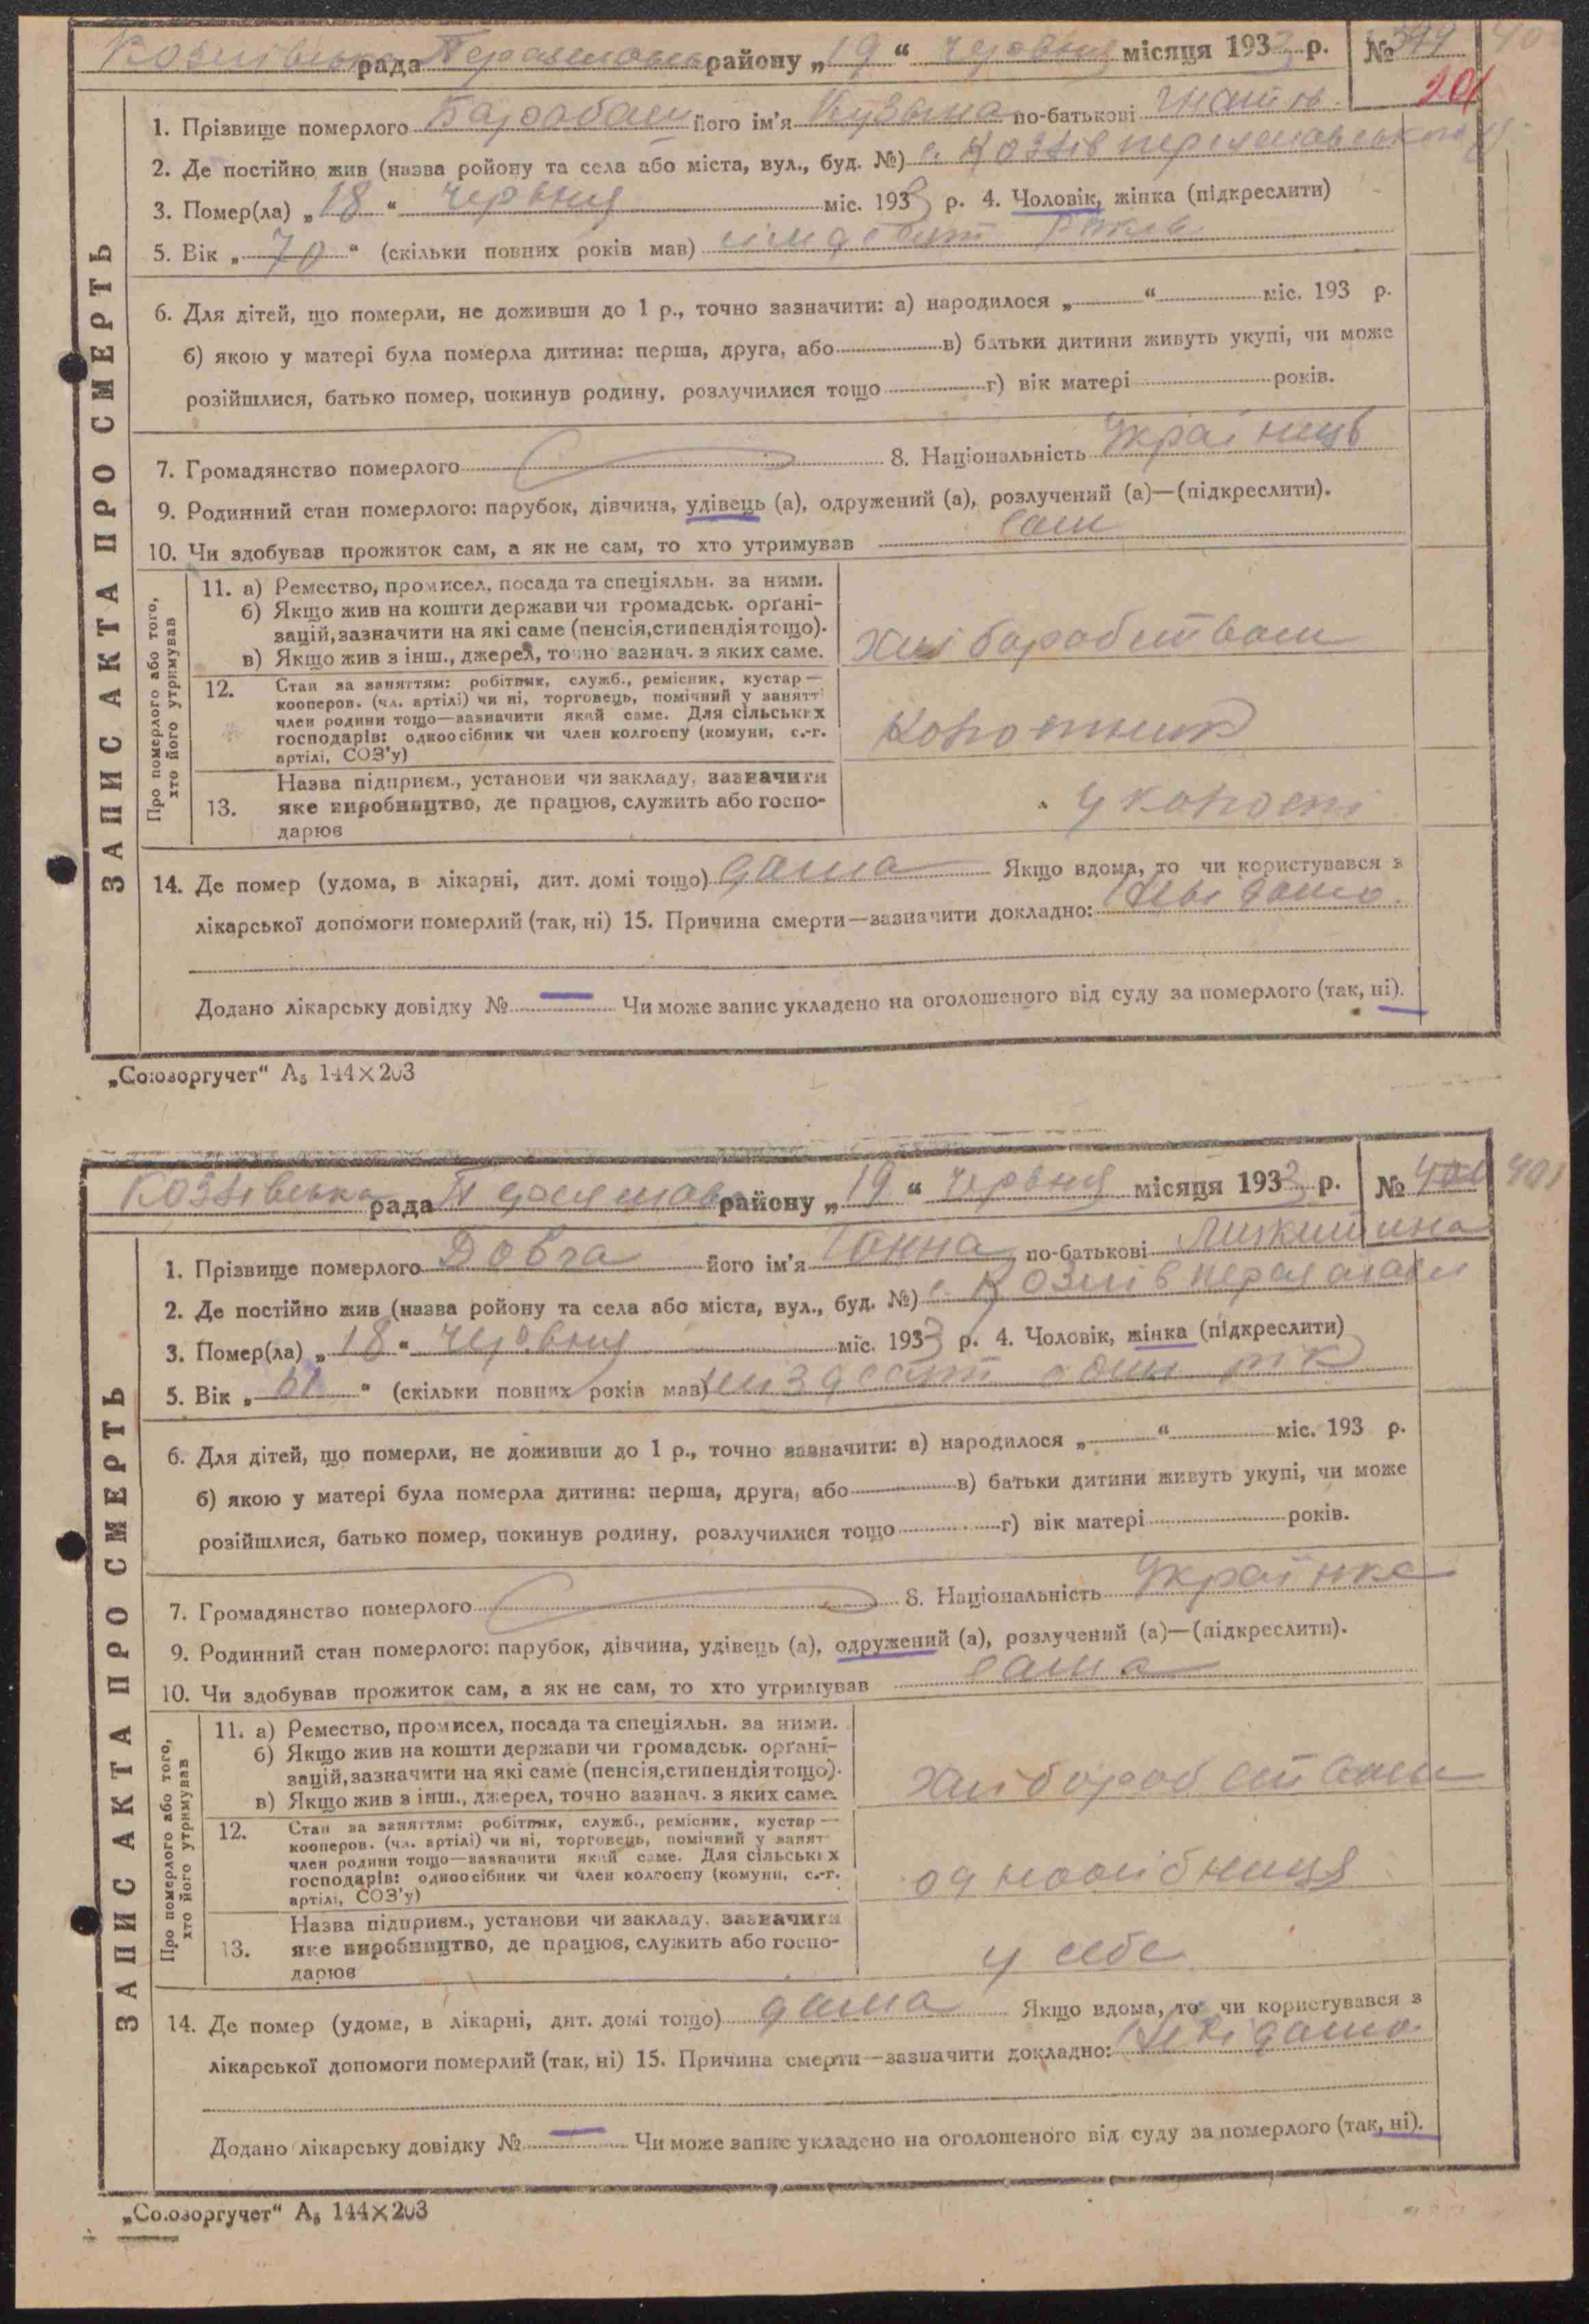 Козлівська рада Переяслав району „19“ червня місяця 1933 р. № 399 40
201
ЗАПИС АКТА ПРО СМЕРТЬ
1. Прізвище померлого Барабаш його ім'я Кузьма по-батькові Гнатов.
2. Де постійно жив (назва ройону та села або міста, вул., буд. №) с. Козлів переяславського р.
3. Помер(ла) „18“ червня міс. 1933 р. 4. Чоловік, жінка (підкреслити)
5. Вік „70“ (скільки повних років мав) сімдесят років
6. Для дітей, що померли, не доживши до 1 р., точно зазначити: а) народилося „ “ міс. 193 р.
б) якою у матері була померла дитина: перша, друга, або в) батьки дитини живуть укупі, чи може
розійшлися, батько помер, покинув родину, розлучилися тощо г) вік матері років.
7. Громадянство померлого 8. Національність Українець
9. Родинний стан померлого: парубок, дівчина, удівець (а), одружений (а), розлучений (а)—(підкреслити).
10. Чи здобував прожиток сам, а як не сам, то хто утримував сам
Про померлого або того,
хто його утримував
11. а) Ремество, промисел, посада та спеціяльн. за ними.
б) Якщо жив на кошти держави чи громадськ. орґані-
зацій, зазначити на які саме (пенсія, стипендія тощо).
в) Якщо жив з інш., джерел, точно зазнач. з яких саме.
Хліборобством
12. Стан за заняттям: робітник, служб., ремісник, кустар—
кооперов. (чл. артілі) чи ні, торговець, помічний у занятт
член родини тощо—зазначити який саме. Для сільських
господарів: одноосібник чи член колгоспу (комуни, с.-г.
артілі, СОЗ'у)
Колгоспник
13. Назва підприєм., установи чи закладу, зазначити
яке виробництво, де працюв, служить або госпо-
дарюв
У колгоспі
14. Де помер (удома, в лікарні, дит. домі тощо) дома Якщо вдома, то чи користувався з
лікарської допомоги померлий (так, ні) 15. Причина смерти—зазначити докладно: Невідомо.
Додано лікарську довідку № — Чи може запис укладено на оголошеного від суду за померлого (так, ні).
„Союзоргучет“ А5 144×203
Козлівська рада Переяслав району „19“ червня місяця 1933 р. № 400 401
ЗАПИС АКТА ПРО СМЕРТЬ
1. Прізвище померлого Довга його ім'я Ганна по-батькові Микитина
2. Де постійно жив (назва ройону та села або міста, вул., буд. №) с. Козлів переяслав
3. Помер(ла) „18“ червня міс. 1933 р. 4. Чоловік, жінка (підкреслити)
5. Вік „61“ (скільки повних років мав) шіздесят один рік
6. Для дітей, що померли, не доживши до 1 р., точно зазначити: а) народилося „ “ міс. 193 р.
б) якою у матері була померла дитина: перша, друга, або в) батьки дитини живуть укупі, чи може
розійшлися, батько помер, покинув родину, розлучилися тощо г) вік матері років.
7. Громадянство померлого 8. Національність Українка
9. Родинний стан померлого: парубок, дівчина, удівець (а), одружений (а), розлучений (а)—(підкреслити).
10. Чи здобував прожиток сам, а як не сам, то хто утримував сама
Про померлого або того,
хто його утримував
11. а) Ремество, промисел, посада та спеціяльн. за ними.
б) Якщо жив на кошти держави чи громадськ. орґані-
зацій, зазначити на які саме (пенсія, стипендія тощо).
в) Якщо жив з інш., джерел, точно зазнач. з яких саме.
Хліборобством
12. Стан за заняттям: робітник, служб., ремісник, кустар—
кооперов. (чл. артілі) чи ні, торговець, помічний у занят
член родини тощо—зазначити який саме. Для сільських
господарів: одноосібник чи член колгоспу (комуни, с.-г.
артілі, СОЗ'у)
одноосібниця
13. Назва підприєм., установи чи закладу, зазначити
яке виробництво, де працюв, служить або госпо-
дарюв
у себе
14. Де помер (удома, в лікарні, дит. домі тощо) дома Якщо вдома, то чи користувався з
лікарської допомоги померлий (так, ні) 15. Причина смерти—зазначити докладно: Невідомо.
Додано лікарську довідку № — Чи може запис укладено на оголошеного від суду за померлого (так, ні).
„Союзоргучет“ А5 144×203